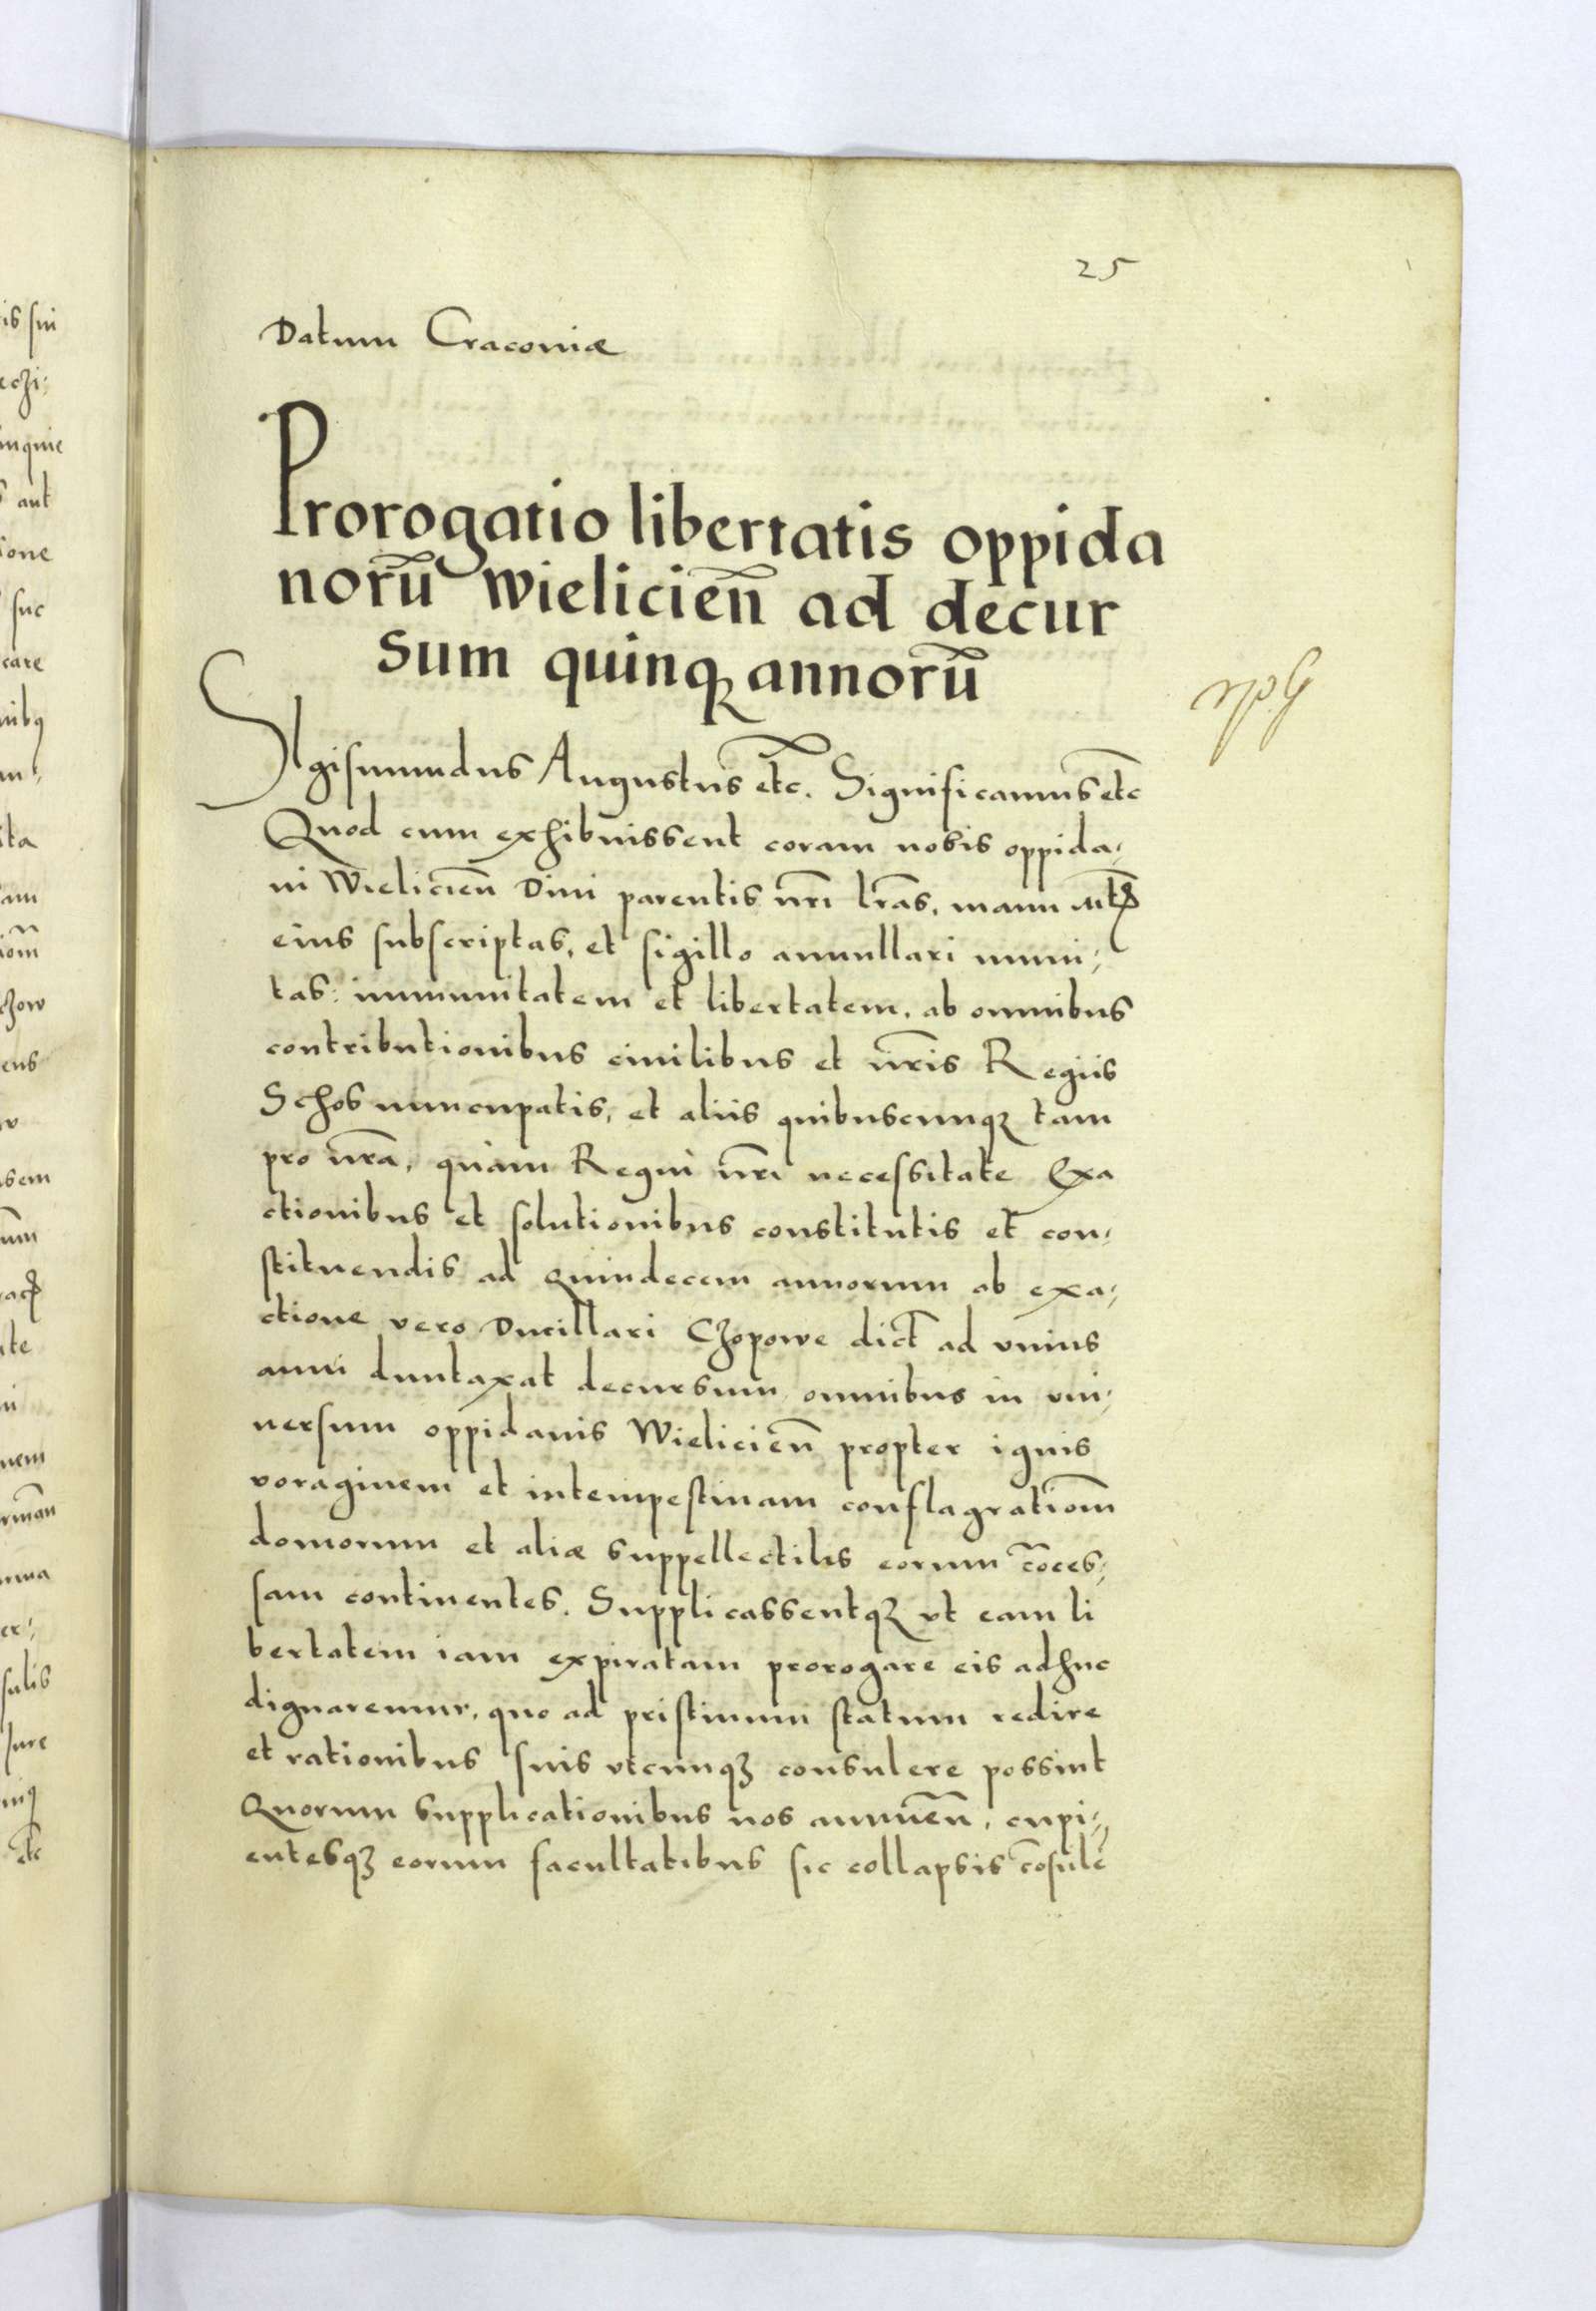 25
Datum Craconiæ
Prorogatio libertatis oppida
norū Wielicien̄ ad decur
sum quinqꝫ annorū
SIgismundus Augustus etc. Significamus etc
Quod cum exhibuissent coram nobis oppida⸗
ni Wielicien̄ Diui parentis nr̄i lr̄as, manu Mtꝭ
eius subscriptas, et sigillo annullari muni⸗
tas: immunitatem et libertatem, ab omnibus
contributionibus ciuilibus et nr̄is Regiis
Schos nuncupatis, et aliis quibuscunqꝫ tam
pro nr̄a, quàm Regni nr̄i necessitate Exa
ctionibus et solutionibus constitutis et con⸗
stituendis ad quindecem annorum ab exa⸗
ctione vero Ducillari Czopowe dict ad vnius
anni duntaxat decursum omnibus in vni⸗
uersum oppidanis Wielicien̄ propter ignis
voraginem et intempestiuam conflagratiom̄
domorum et aliæ suppellectilis eorum c̄oces⸗
sam continentes. Supplicassentqꝫ vt eam li
bertatem iam expiratam prorogare eis adhuc
dignaremur, quo ad pristinum statum redire
et rationibus suis vtcunqꝫ consulere possint
Quorum supplicationibus nos annuen̄, cupi⸗
entesqꝫ eorum facultatibus sic collapsis c̄osule